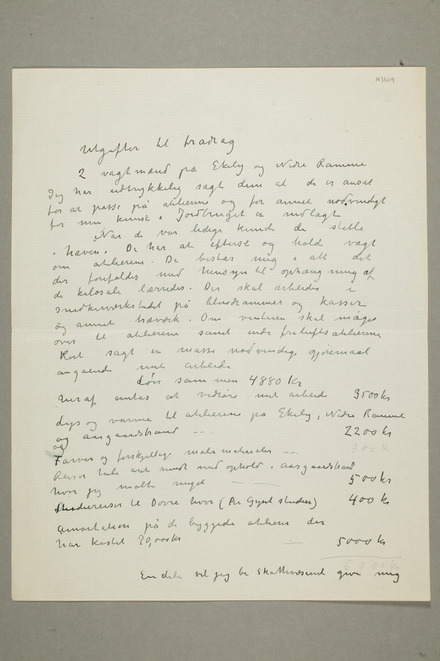 Utgifter til fradrag
2 vagtmænd på Ekely og Nedre Ramme
Jeg har udtrykkelig sagt dem at de er ansat
for at passe på atelierne og for annet nødvendigt
for min kunst. Jordbruget er nedlagt
Når de var ledige kunde de stelle
i haven. De har at efterse og hold vagt
om atelierne. De bistår mig i alt det
der forefaldes med hensyn til ophængning af
de kolosale lærreder. Der skal arbeides i
snedkerværkstedet på blendrammer og kasser
og annet træverk. Om vinteren skal måges
over til atelierne samt inde friluftsatelierne
Kort sagt en masse nødvendige gjøremaal
angaaende mit arbeide
Løn sammen 4880 Kr
Heraf antas at vedrøre mit arbeide 3500 kr
lys og varme til atelierne på Ekely, Nedre Ramme
og Aasgaardstrand -- 2200 kr
Farver og forskjellige malematerialer --
Reiser hele året rundt med ophold i Aasgaardstrand
hvor jeg malte meget -- 500 kr
Studiereiser til Dovre hvor (Per Gynt studier) 400 kr
Amortation på de byggede atelier der
har kostet 70,000 kr -- 5000 kr
En del vil jeg be Skattevæsenet give mig